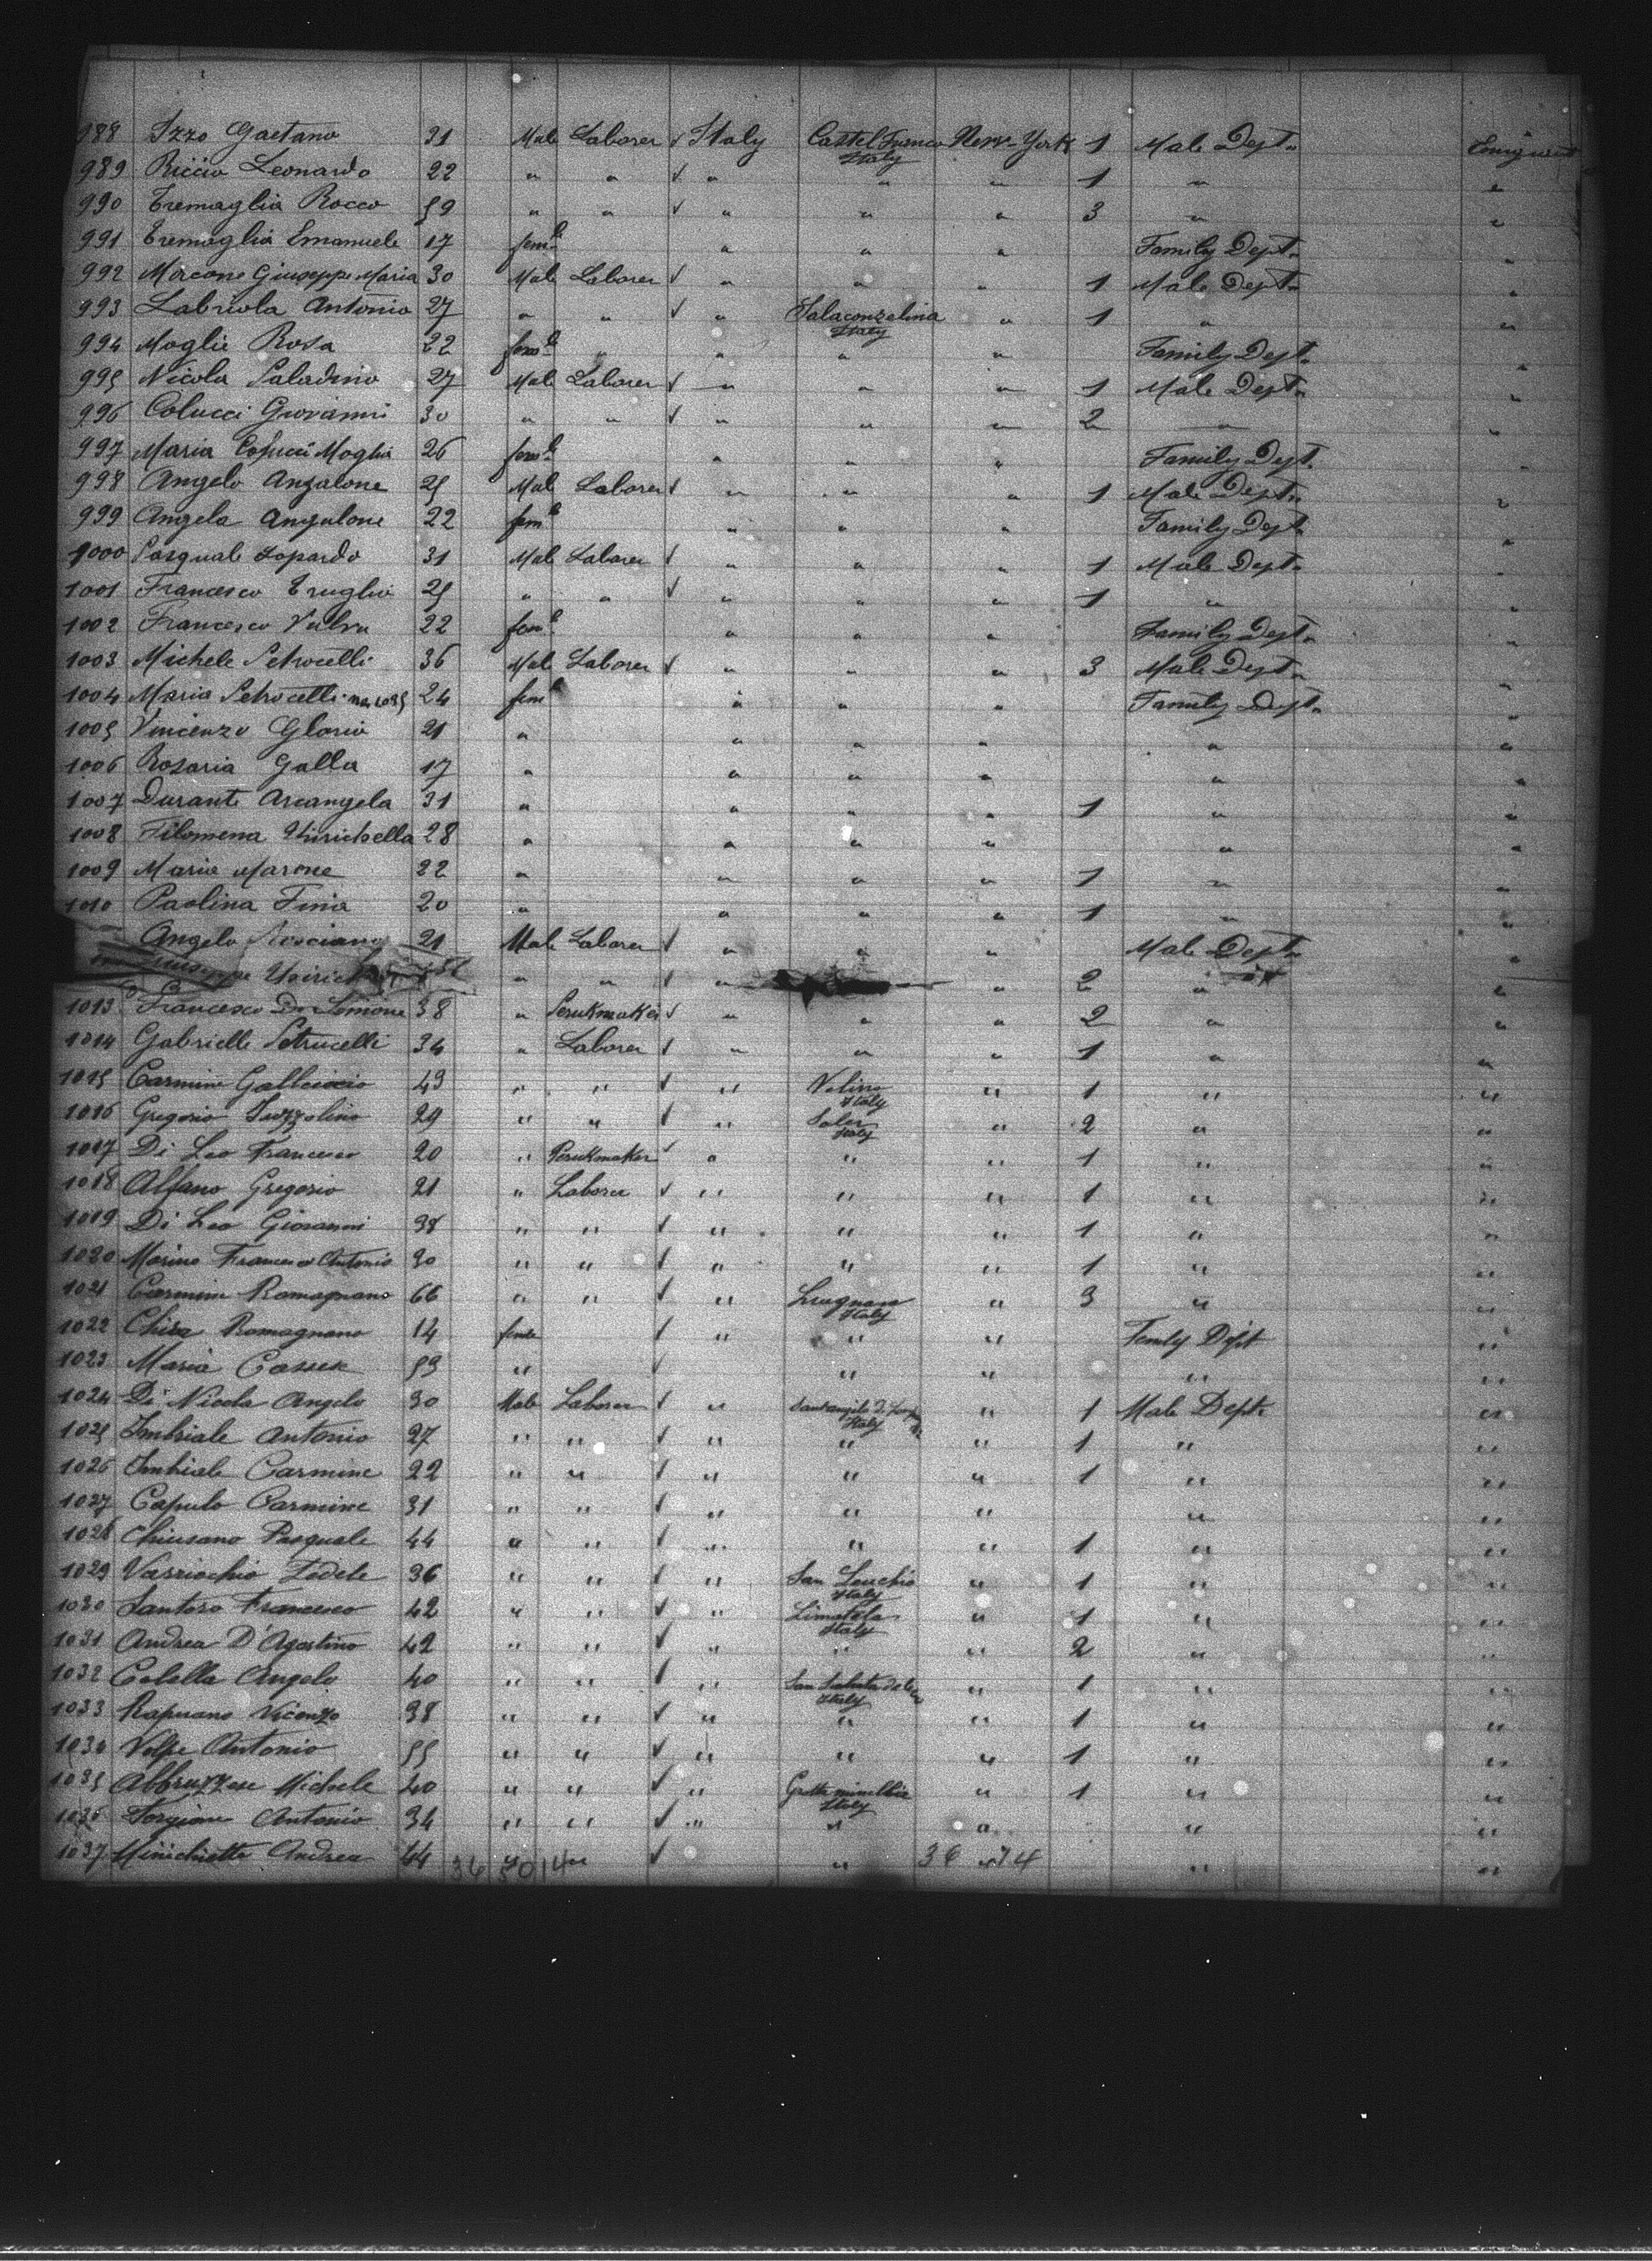 988 Izzo Gaetano 31 Male Laborer √ Italy Castel Franco Italy New-York 1 Male Dept. Emigrant
989 Riccio Leonardo 22 " " √ " " " 1 " "
990 Tremaglia Rocco 59 " " √ " " " 3 " "
991 Tremaglia Emanuele 17 femle " " " Family Dept. "
992 Marcone Giuseppe Maria 30 Male Laborer √ " " " 1 Male Dept. "
993 Labriola Antonio 27 " " √ " Salaconzelina Italy " 1 " "
994 Moglie Rosa 22 femle " " " " Family Dept. "
995 Nicola Paladino 27 Male Laborer √ " " " 1 Male Dept. "
996 Colucci Giovanni 30 " " √ " " " 2 " "
997 Maria Moglia 26 femle " " " Family Dept. "
998 Angelo Anzalone 25 Male Laborer √ " " " 1 Male Dept. "
999 Angela Anzalone 22 femle " " " Family Dept. "
1000 Pasquale Lopardo 31 Male Laborer √ " " " 1 Male Dept. "
1001 Francesco Truglio 25 " " √ " " " 1 " "
1002 Francesco 22 femle " " " Family Dept. "
1003 Michele Petrocelli 36 Male Laborer √ " " " 3 Male Dept. "
1004 Maria Petrocelli 24 femle " " " Family Dept. "
1005 Vincenzo Gloria 21 " " " " " "
1006 Rosaria Galla 17 " " " " " "
1007 Durante Arcangela 31 " " " " 1 " "
1008 Filomena 28 " " " " " "
1009 Maria Marone 22 " " " " 1 " "
1010 Paolina Finia 20 " " " " 1 " "
Angelo 21 Male Laborer √ " " " Male Dept. "
" " √ " " 2 " "
1013 Francesco Di Simone 38 " Perukmaker √ " " " 2 " "
1014 Gabrielle Petrucelli 34 " Laborer √ " " " 1 " "
1015 Carmine 43 " " √ " Velino Italy " 1 " "
1016 Gregorio Iuzzolino 29 " " √ " Saler Italy " 2 " "
1017 Di Leo Francesco 20 " Perukmaker √ " " " 1 " "
1018 Alfano Gregorio 21 " Laborer √ " " " 1 " "
1019 Di Leo Giovanni 38 " " √ " " " 1 " "
1020 Marino Francesco Antonio 30 " " √ " " " 1 " "
1021 Carmine Romagnano 66 " " √ " Italy " 3 " "
1022 Romagnano 14 femle √ " " " Family Dept "
1023 Maria 59 " √ " " " "
1024 Di Nicola Angelo 30 Male Laborer √ " Italy " 1 Male Dept. "
1025 Imbriale Antonio 27 " " √ " " " 1 " "
1026 Imbriale Carmine 22 " " √ " " " 1 " "
1027 Caputo Carmine 31 " " √ " " " " "
1028 Chiusano Pasquale 44 " " √ " " " 1 " "
1029 Varriochio Fedele 36 " " √ " San Leuchio Italy " 1 " "
1030 Santoro Francesco 42 " " √ " Limatola Italy " 1 " "
1031 Andrea D'Agostino 42 " " √ " " " 2 " "
1032 Colella Angelo 40 " " √ " San Italy " 1 " "
1033 Rapuano Vicenzo 38 " " √ " " " 1 " "
1034 Volpe Antonio 55 " " √ " " " 1 " "
1035 Abbruzzese Michele 40 " " √ " Italy " 1 " "
1036 Forgione Antonio 34 " " √ " " " " "
1037 Minichiette Andrea 44 " " √ " " "